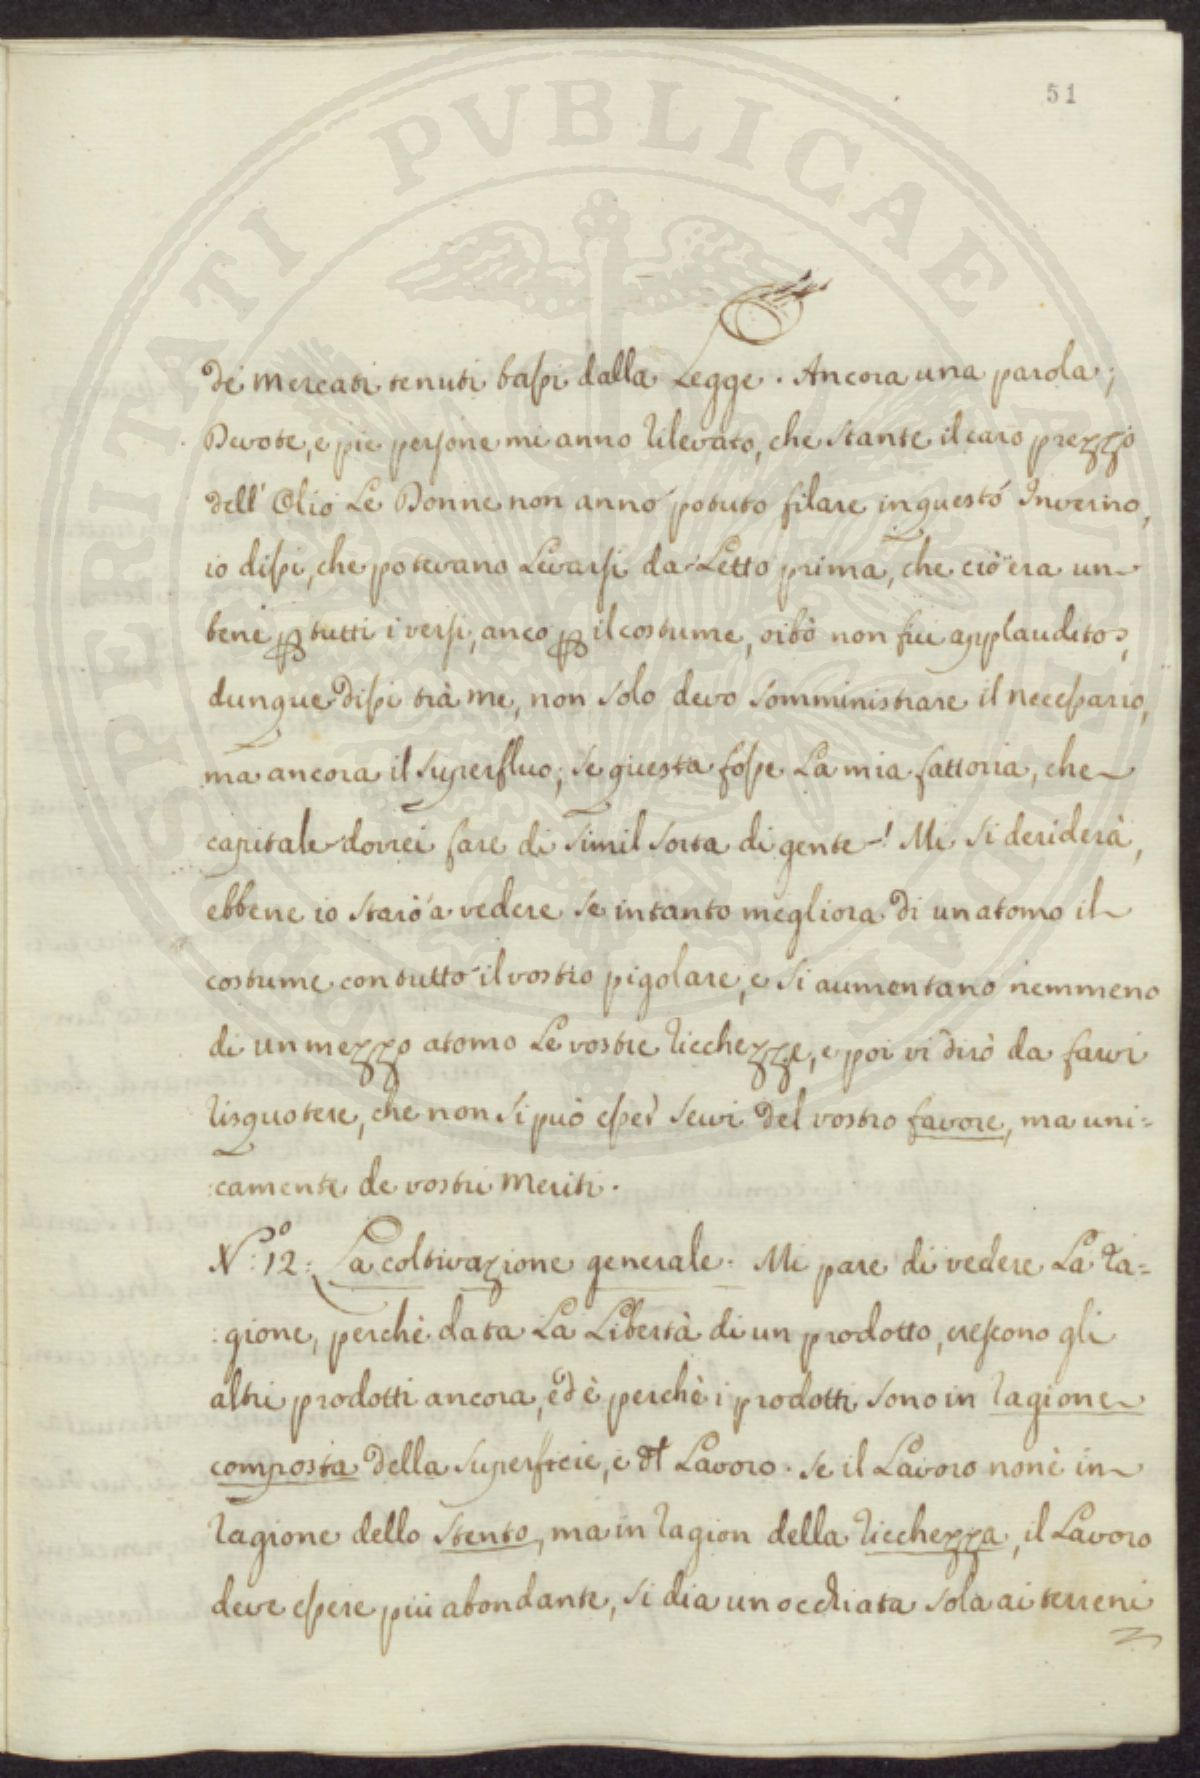 51
PROSPERITATI PVBLICAE
de mercati tenuti bassi dalla Legge. Ancora una parola;
Devote, e pie persone mi anno rilevato, che stante il caro prezzo
dell' Olio Le Donne non anno potuto filare in questo Inverno,
io dissi, che potevano Levarsi da Letto prima, che ciò era un
bene per tutti i versi, anco per il costume, oibò non fu applaudito,
dunque dissi trà me, non solo devo somministrare il necessario,
ma ancora il superfluo; se questa fosse La mia fattoria, che
capitale dovrei fare di simil sorta di gente! Mi si deriderà,
ebbene io starò a vedere se intanto megliora di un atomo il
costume con tutto il vostro pigolare, e si aumentano nemmeno
di un mezzo atomo Le vostre ricchezze, e poi vi dirò da farvi
risquotere, che non si può esser servi del vostro favore, ma uni=
:camente de vostri meriti.
N.º 12: La coltivazione generale. Mi pare di vedere La ra=
:gione, perchè data La Libertà di un prodotto, crescono gli
altri prodotti ancora, ed è perchè i prodotti sono in ragione
composta della superficie, e del Lavoro. Se il Lavoro non è in
ragione dello stento, ma in ragion della ricchezza, il Lavoro
deve essere più abondante, si dia un occhiata sola ai terreni